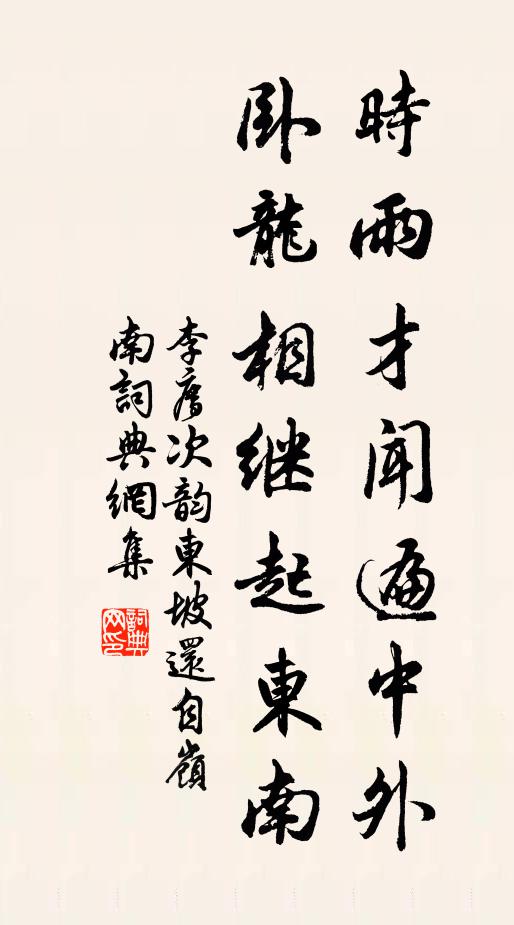 時雨才聞遍中外
卧龍相継起東南
李廌次韵東坡還自嶺
南詞典網集
詞典網印